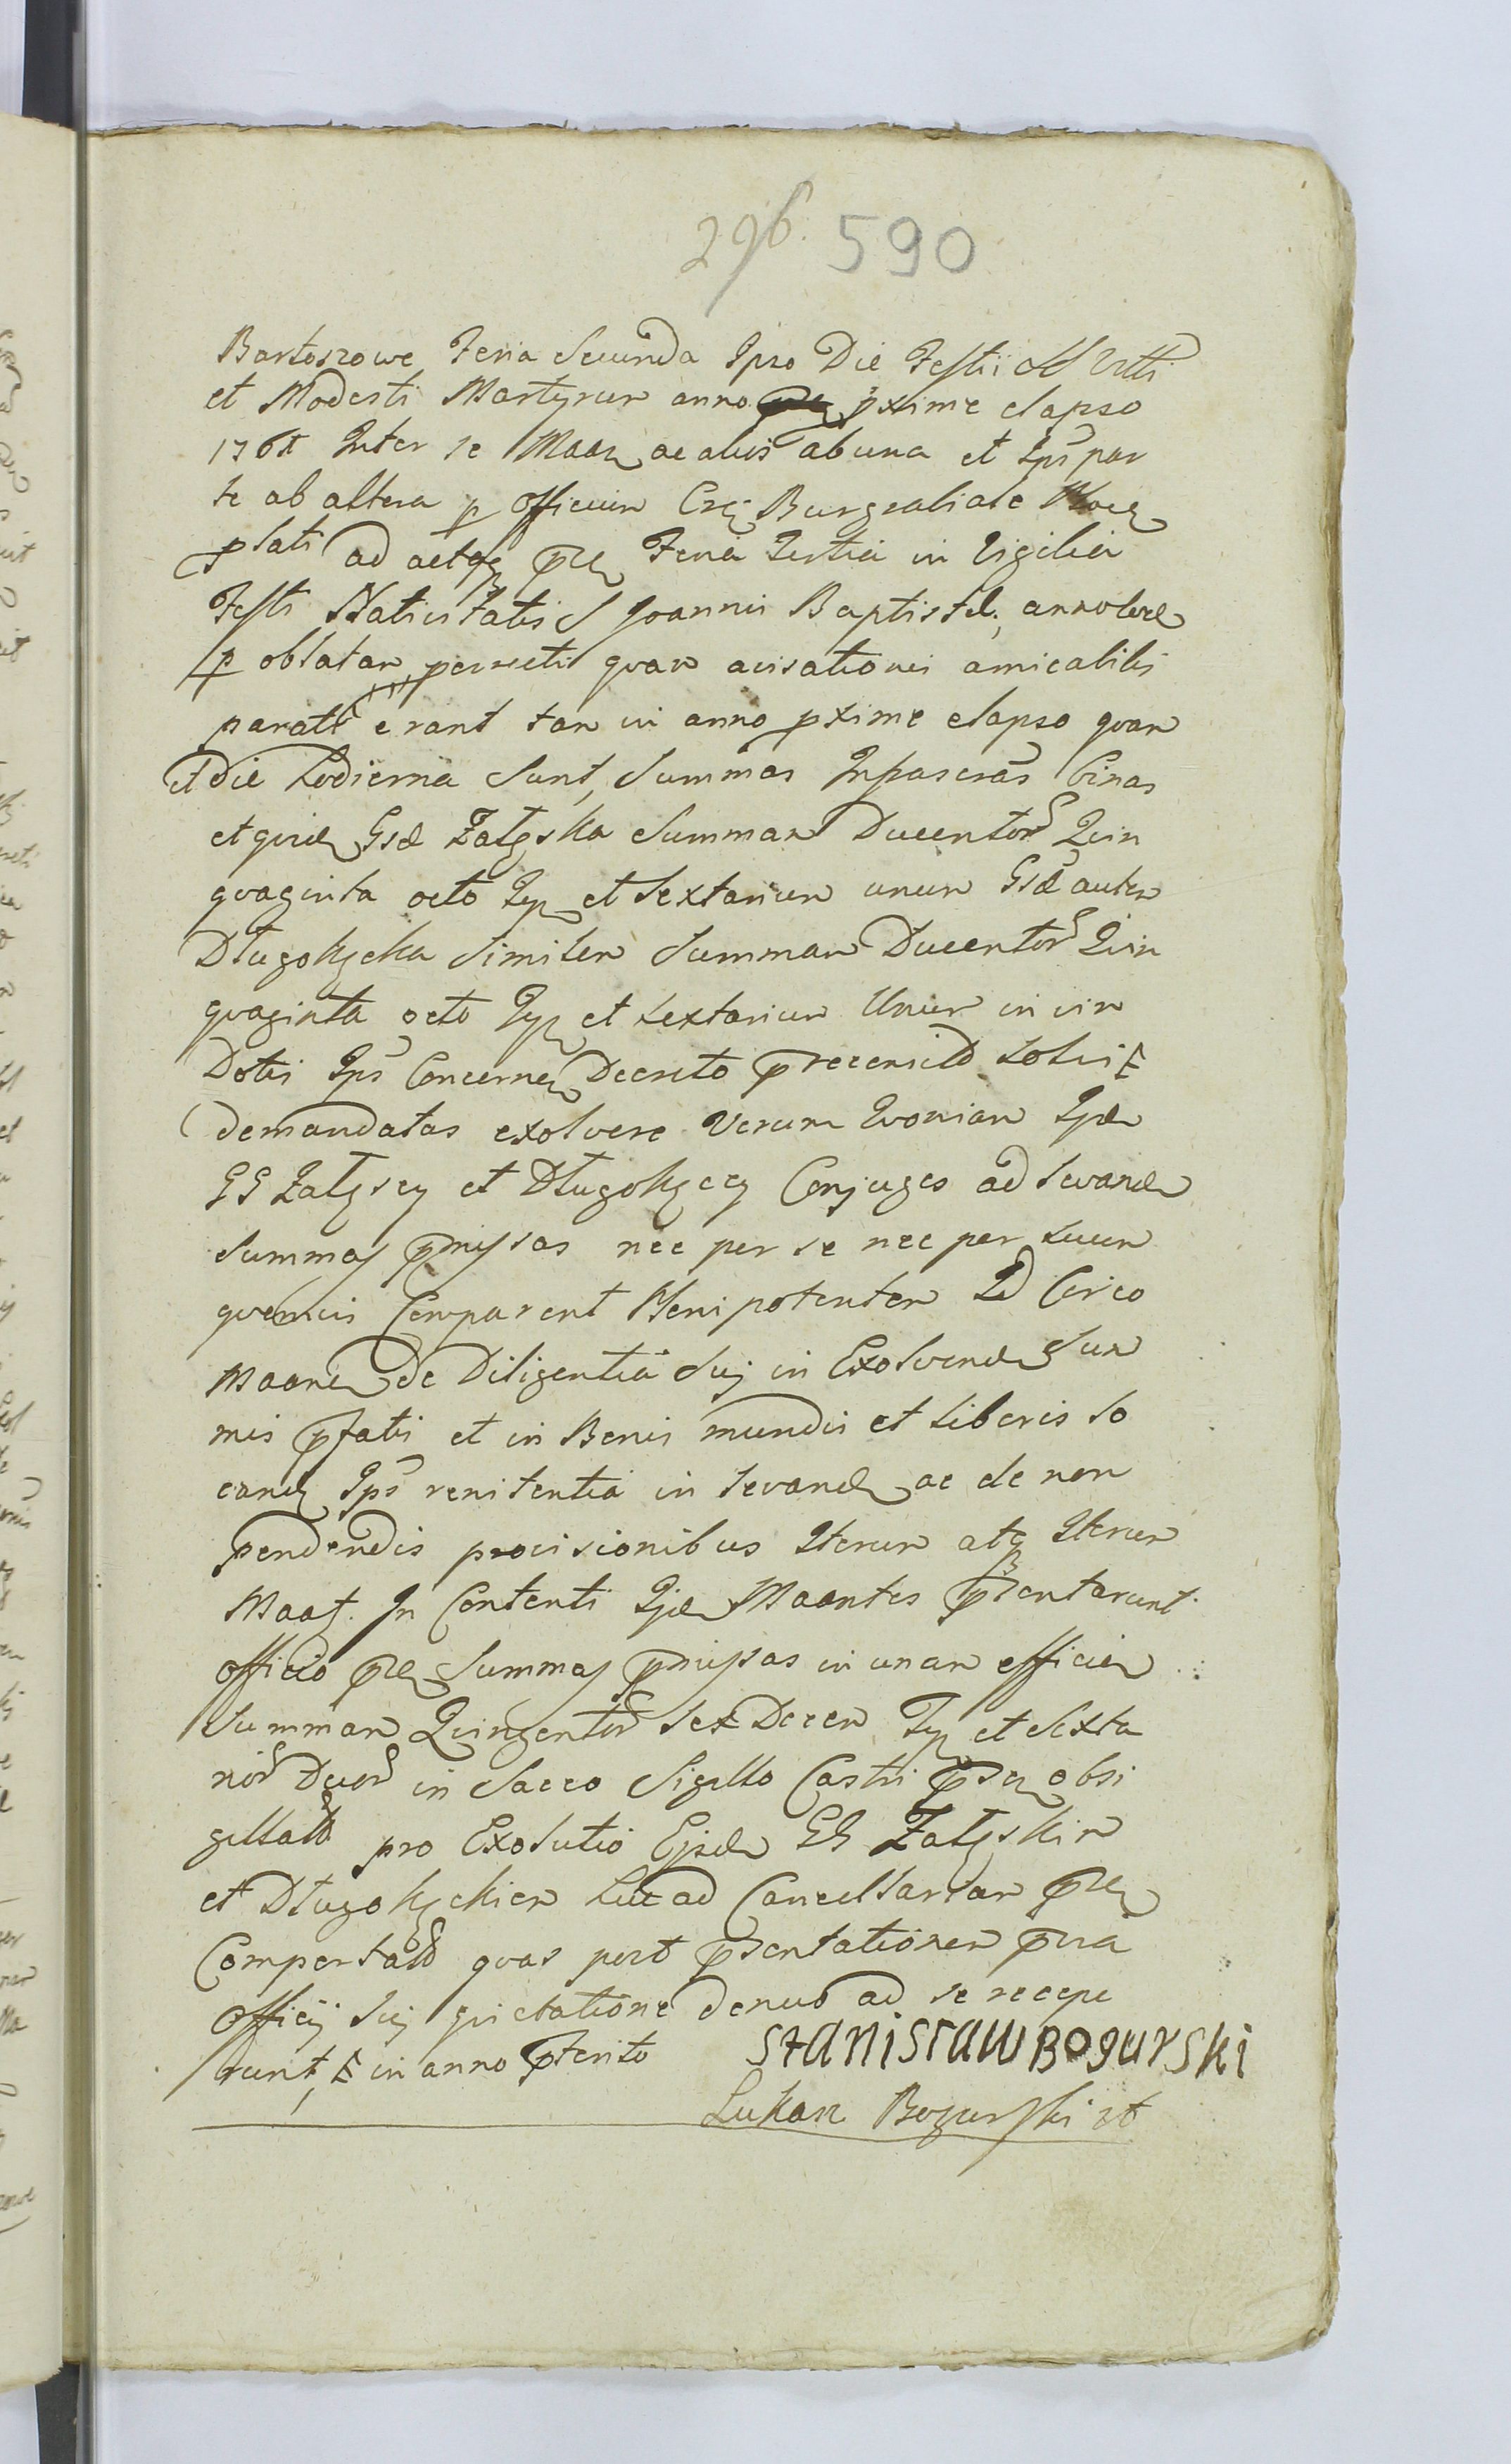 296. 590
Bartoszowe Feria Secunda Ipso Die Festi SS Viti
et Modesti Martyrum anno pxime elapso
1761 Inter se Maan ac alios ab una et Ips par
te ab altera p officium Csc Burgrabiale
plati ad actq pn Feria Tertia in Vigilia
Festi Nativitatis S Joannis Baptistæ, anno
p oblatam perrecti quam avisationis amicabilis
parati erant tam in anno pxime elapso quam
et die hodierna sunt, Summas Infrascras binas
et quid Gsæ Zalęska Summam Ducentor Quin
quaginta octo Typ et sextarium unum Gsæ autem
Długołęcka similem Summam Ducentor Quin
quaginta octo Typ et sextarium Unum in vim
Dotis Ips Concernen Decreto precensito solvi
demandatas exolvere Verum Qvoniam Ijdem
GG Zalęscy et Długołęccy Conjuges ad levand
Summas pmissas nec per se nec per suum
quemvis Comparent Plenipotentem Id Circo
Maanen de Diligentia sui in Exolvend Sum
mis pfatis et in Bonis mundis et liberis lo
cand Ips renitentia in levand ac de non
pendendis provisionibus Iterum atq Iterum
Maat. In Contenti Ijdem Maantes psentarunt
officio pn Summas pmissas in unam efficien
Summam Quingentor sex Decem Typ et Sexta
rior Duor in Sacco Sigillo Castri psen obsi
gillato pro Exolutio Ejsdem GG Zalęskim
et Długołęckiem huc ad Cancellariam pn
Comportato quas post psentationem pvia
Officij sui quietatione denuo ad se recepe
runt, in anno pterito
Stanisław Bogurski
Lukasz Bogurski